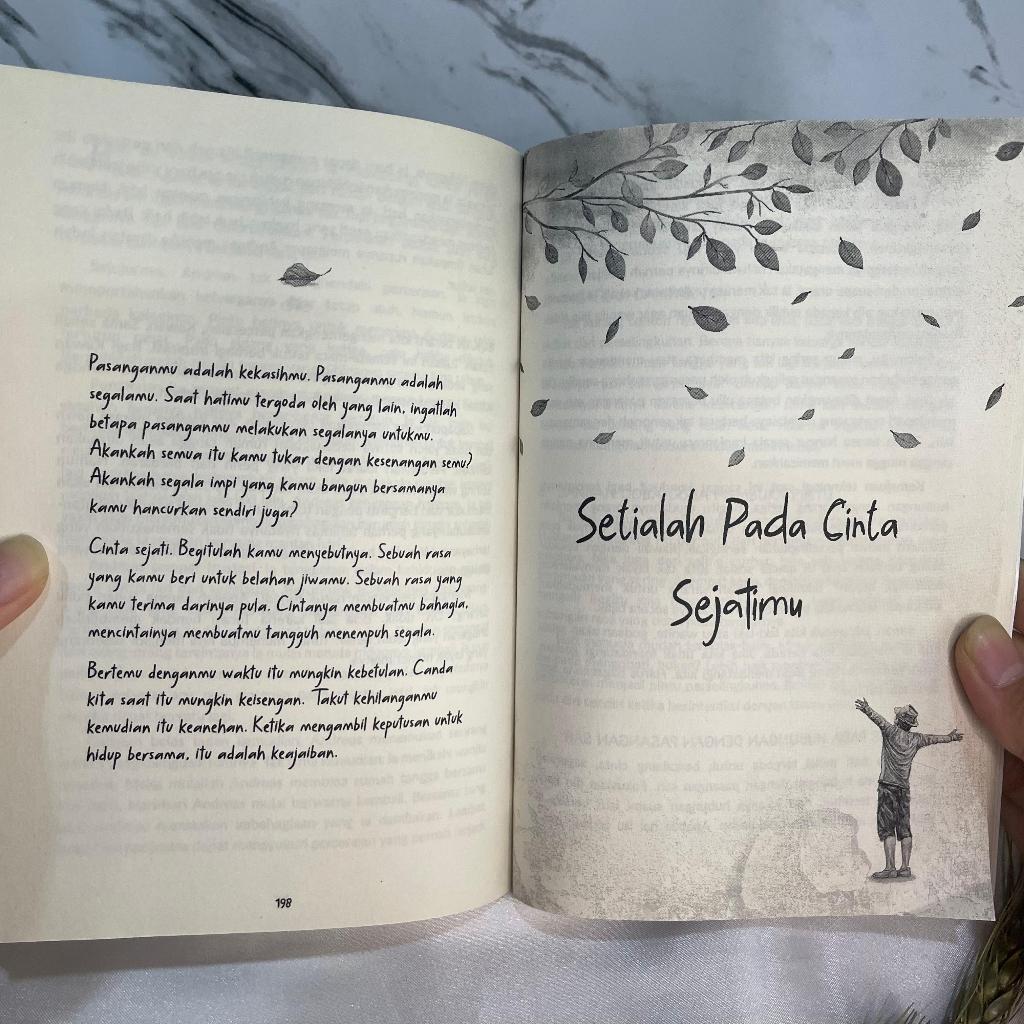 Pasanganmu adalah kekasihmu. Pasanganmu adalah
segalamu. Saat hatimu tergoda oleh yang lain, ingatlah
betapa pasanganmu melakukan segalanya untukmu.
Akankah semua itu kamu tukar dengan kesenangan semu?
Akankah segala impi yang kamu bangun bersamanya
kamu hancurkan sendiri juga?
Cinta sejati. Begitulah kamu menyebutnya. Sebuah rasa
yang kamu beri untuk belahan jiwamu. Sebuah rasa yang
kamu terima darinya pula. Cintanya membuatmu bahagia,
mencintainya membuatmu tangguh menempuh segala.
Bertemu denganmu waktu itu mungkin kebetulan. Canda
kita saat itu mungkin keisengan. Takut kehilanganmu
kemudian itu keanehan. Ketika mengambil keputusan untuk
hidup bersama, itu adalah keajaiban.
198
Setialah Pada Cinta
Sejatimu